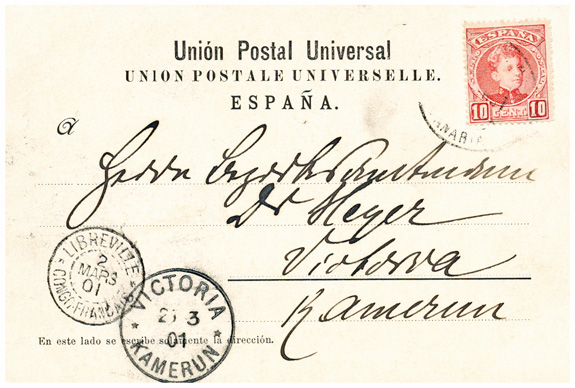 Unión Postal Universal
UNION POSTALE UNIVERSELLE.
ESPAÑA.
ESPAÑA
10 CENT. 10
NARIA
a
Herrn Bezirksamtmann
Dr Meyer
Victoria
Kamerun
LIBREVILLE
2
MARS
01
CONGO-FRANÇAIS
VICTORIA
3
01
KAMERUN
En este lado se escribe solamente la dirección.